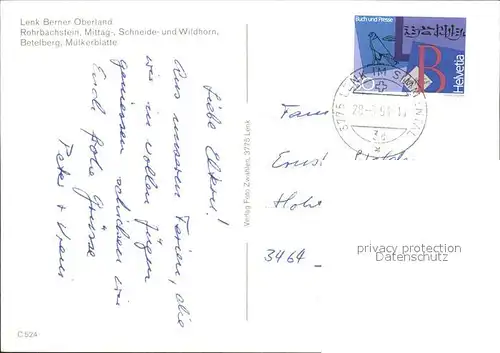 Lenk Berner Oberland
Rohrbachstein, Mittag-, Schneide- und Wildhorn,
Betelberg, Mülkerblatte
Liebe Eltern!
Aus unseren Ferien, die
wir in vollen Zügen
geniessen schicken wir
Euch frohe Grüsse
Peter + Vreni
Verlag Foto Zwahlen, 3775 Lenk
C 524
Buch und Presse
B
Helvetia
3775 LENK IM SIMMENTAL
Fam
Ernst
Hohe
3464
privacy protection
Datenschutz